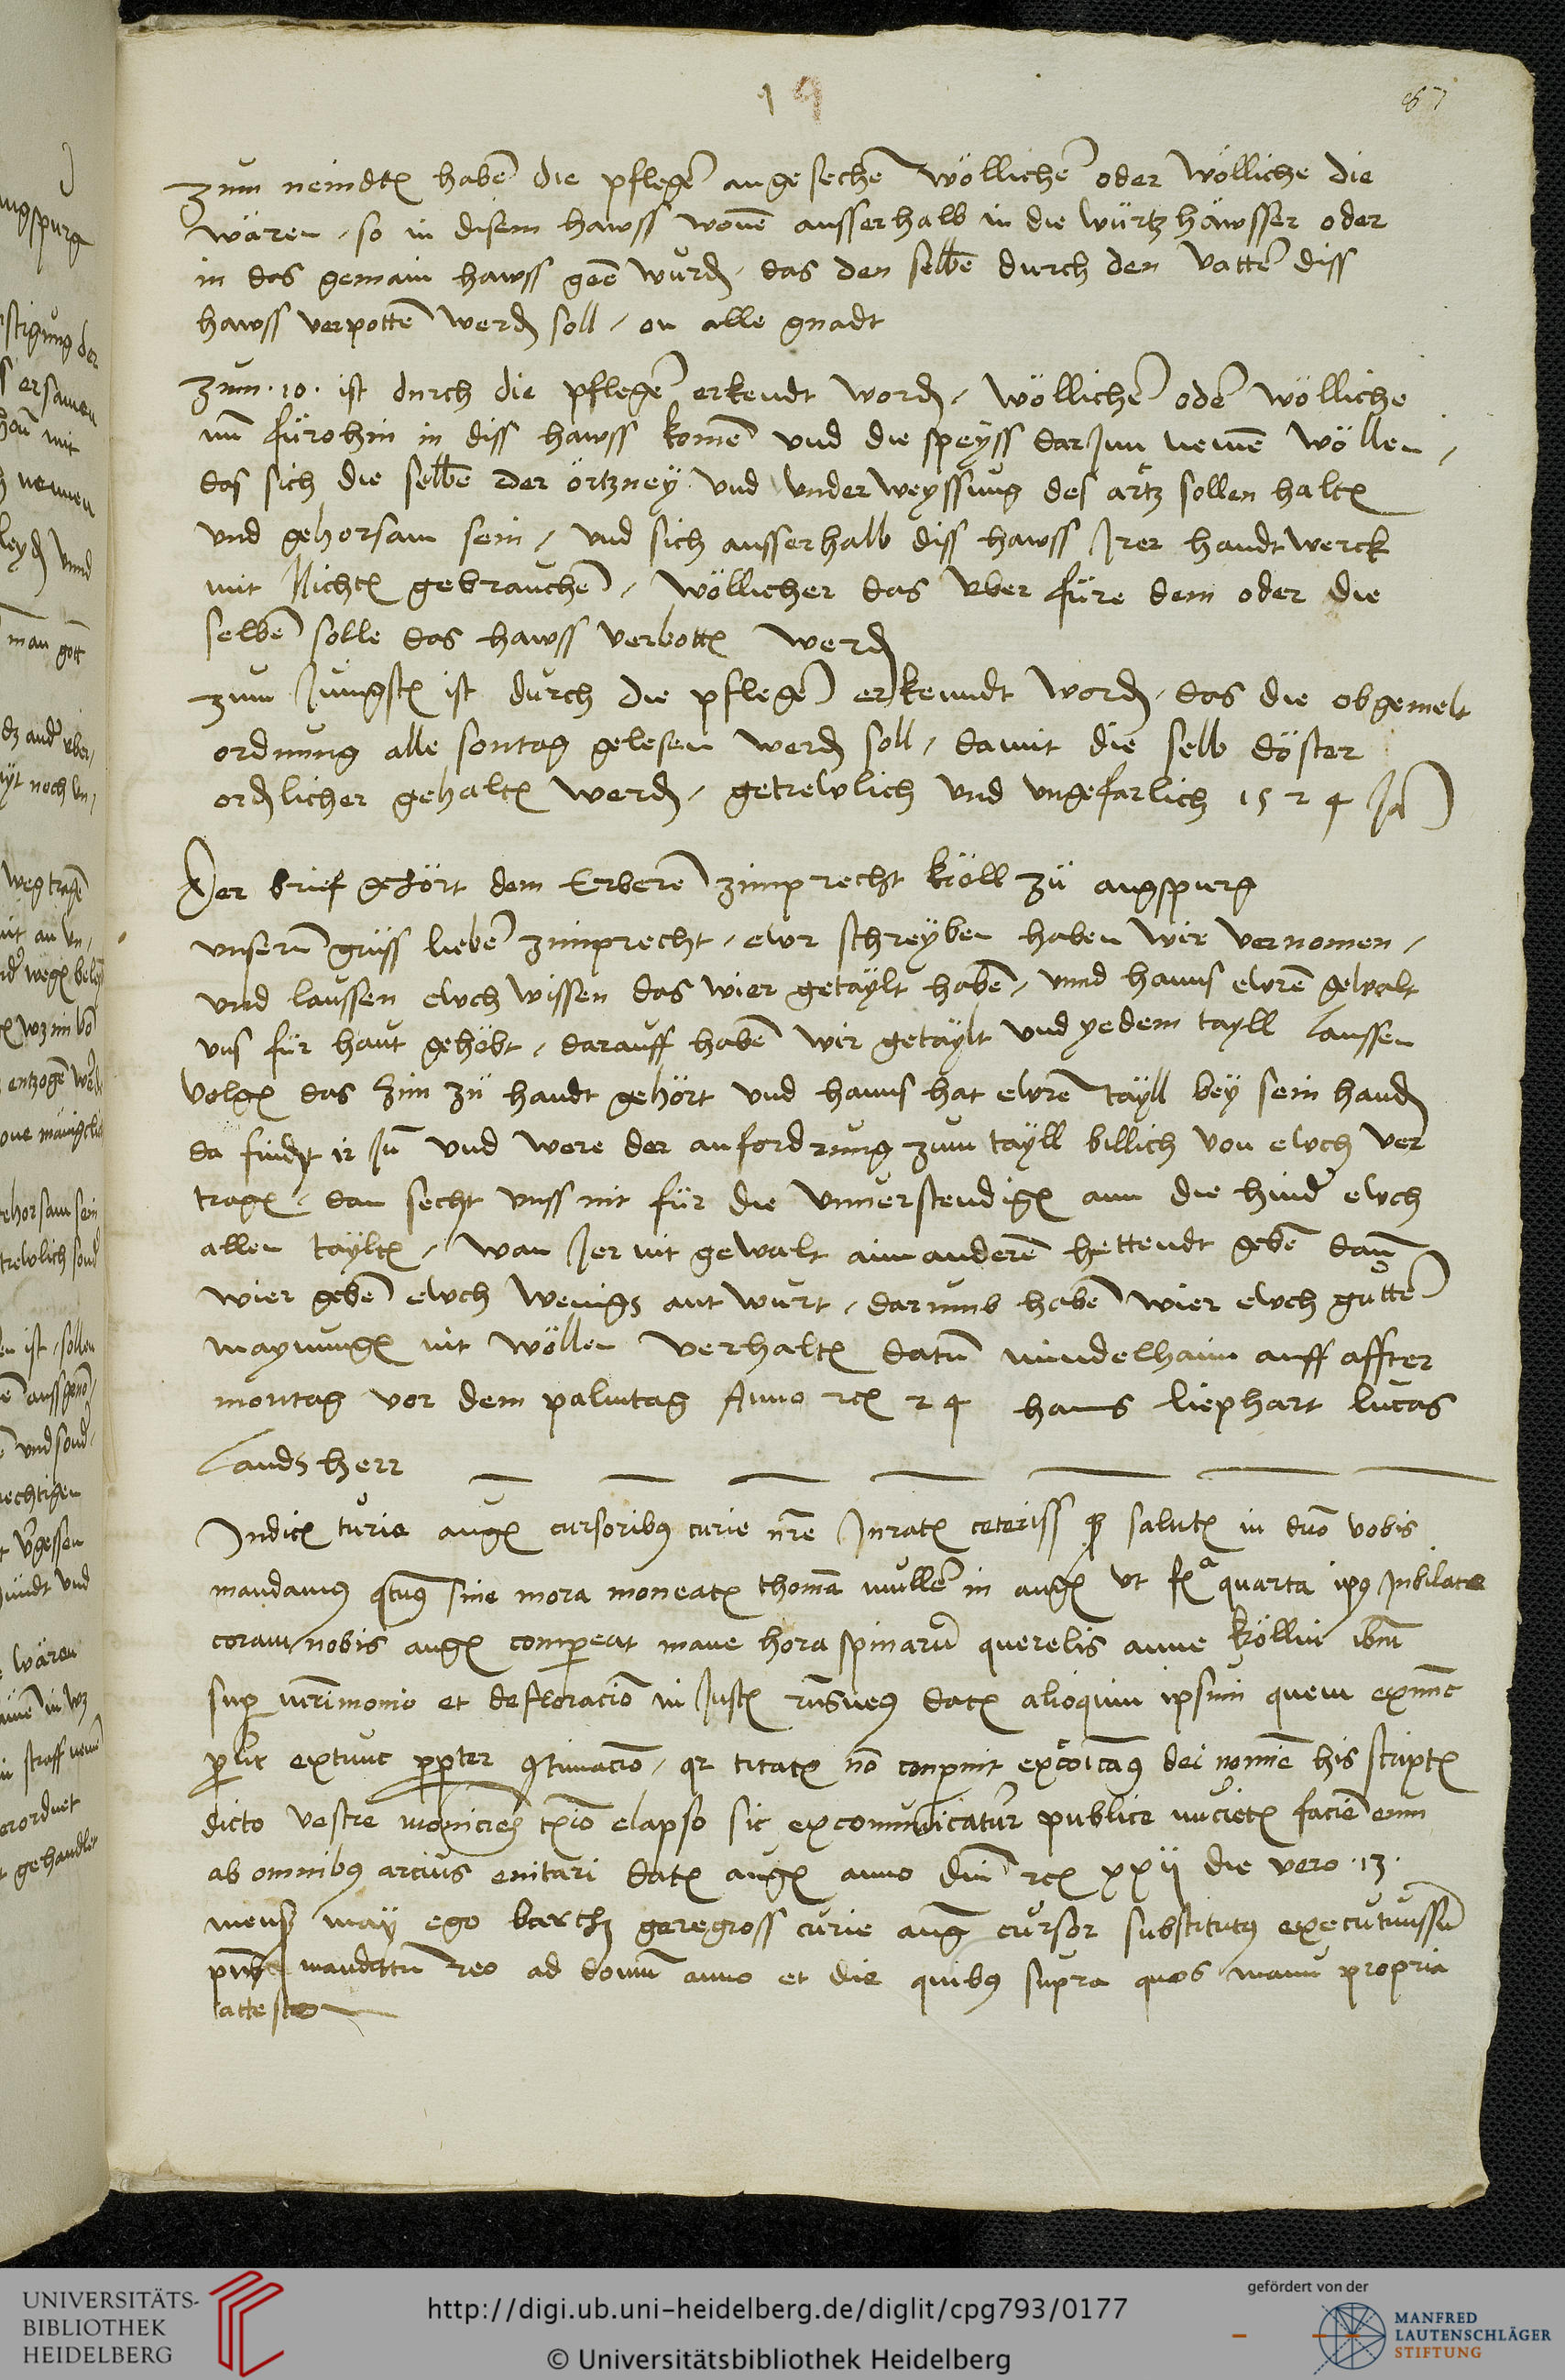 19
87
zum neindten haben die pfleger angesechen wöllicher oder wölliche die
wären / so in disem hawss wonen ausserhalb in die würtzhäwsser oder
in das gemain hawss geen wurden / das den selben durch den vatter diss
hawss verpotten werden soll / on alle gnadt
zum ·10· ist durch die pfleger erkendt worden / wöllicher oder wölliche
nun fürohin in diss hawss komen und die speyss darJnn nemen wöllen /
das sich die selben der örtzney und underweyssung des artz sollen halten
und gehorsam sein / und sich ausserhalb diss hawss Jrer handtwerck
mit Nichten gebrauchen / wöllicher das uber füre dem oder die
selben solle das hawss verbotten werden
zum Jungsten ist durch die pfleger erkenndt worden / das die obgemelt
ordnung alle sontag gelesen werden soll / damit die selb döster
ordenlicher gehalten werden / getrewlich und ungefarlich 1524 Jar
Der brief gehört dem Erberen zimprecht köll zu augspurg
unsern gruss lieber zimprecht / ewr schreyben haben wir vernomen /
und laussen ewch wissen das wier getaylt haben / unnd hanns ewren gewalt
uns für hant gehöbt / darauff haben wir getaylt und yedem tayll laussen
volgen das Jm zu handt gehört und hanns hat ewren tayll bey sein handen
da findt ir Jn und were der anfordrung zum tayll billich von ewch ver
tragen / dan secht unss nit für die unverstendigen ann die hinder ewch
allen taylten / wan Jer nit gewalt aim anderen hettendt geben dann
wier geben ewch wenigs antwurt / darumb haben wier ewch gutter
maynungen nit wöllen verhalten datum mindelhaim auff affter
montag vor dem palmtag Anno etc 24 hanns liephart lucas
landsherr
Judex curie augen cursoribus curie nostre Juratis ceterissque salutem in domino vobis
mandamus quatenus sine mora moneatis thoman muller in augen ut feria quarta ipsius Jubilate
coram nobis augen compereat mane hora primarum querelis anne köllin
super matrimonio et defloracione Justis responsurus datis alioquin ipsum quem exnunc
prout extunc propter contumaciam / quia citatus non conparuit excommunicamus dei nomine his scriptis
dicto vestre monicionis termino elapso sic excommunicatum publice nuncietis facientes eum
ab omnibus arcius evitari datum augen anno domini etc xxii die vero ·13·
mensis may ego geregross curie aug cursor substitutus executus sum
presens mandatum reo ad domum anno et die quibus supra quos manu propria
attestor
UNIVERSITÄTS-
BIBLIOTHEK
HEIDELBERG
http://digi.ub.uni-heidelberg.de/diglit/cpg793/0177
© Universitätsbibliothek Heidelberg
gefördert von der
MANFRED
LAUTENSCHLÄGER
STIFTUNG